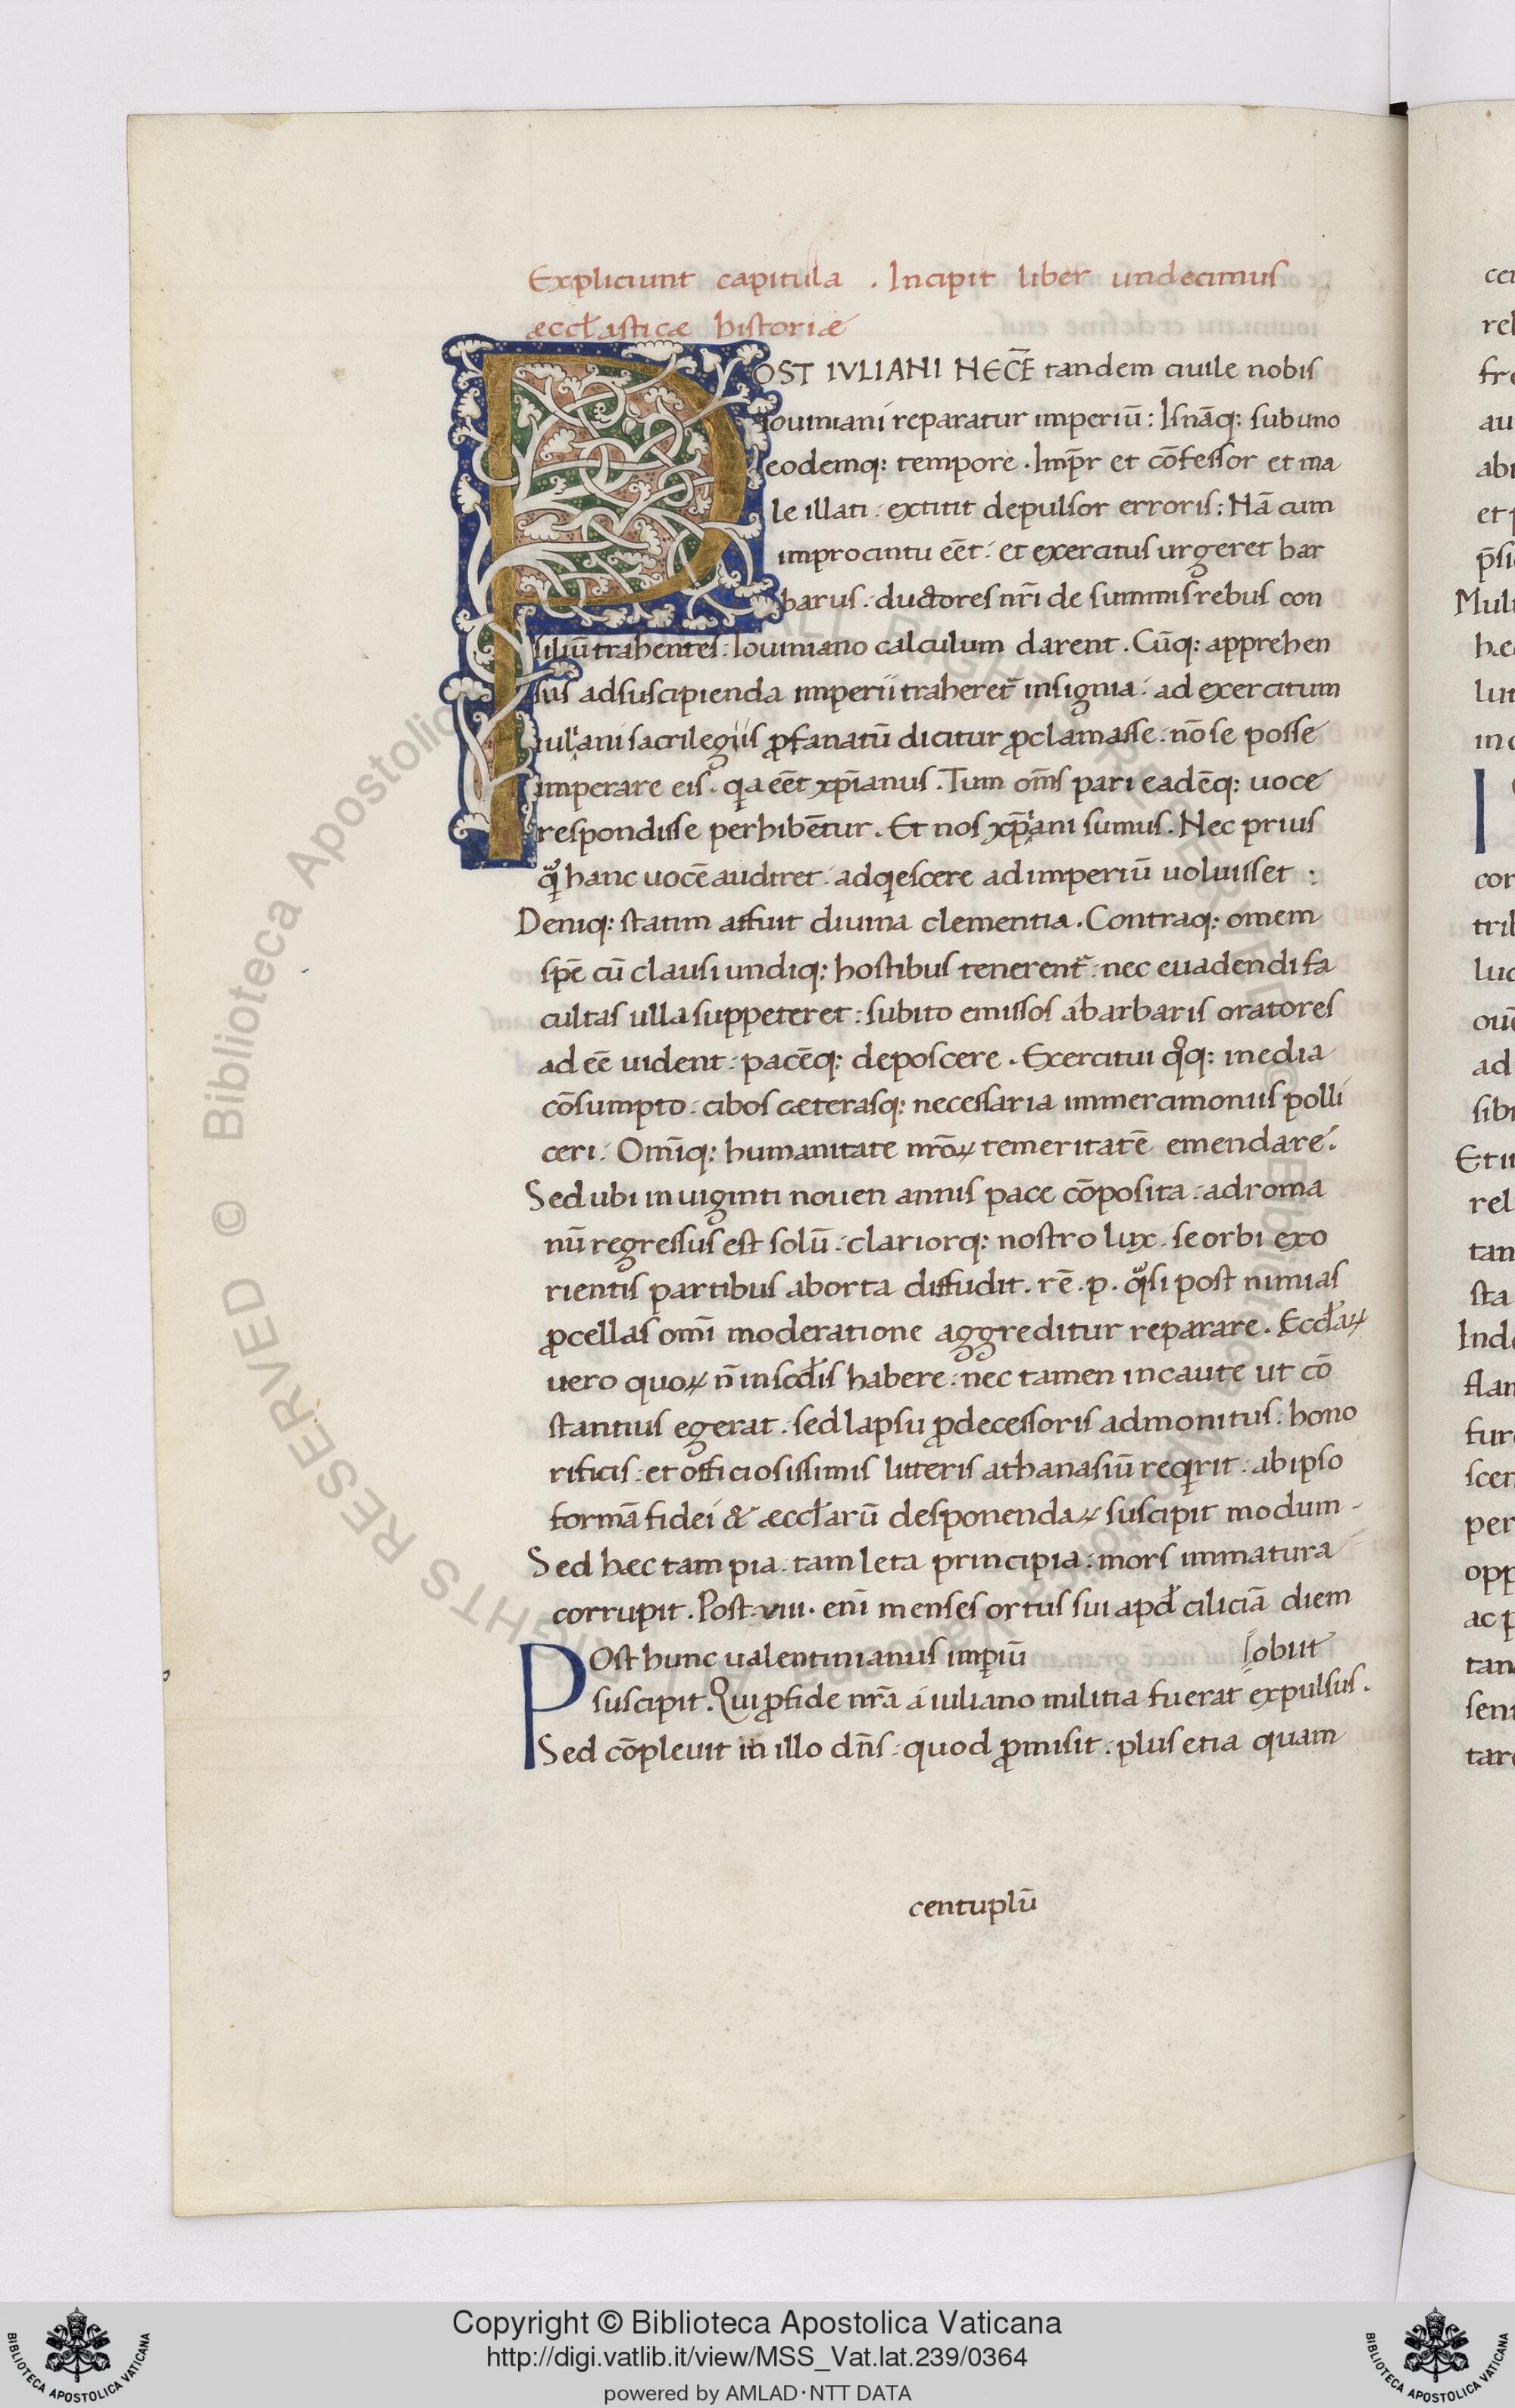 Expliciunt capitula . Incipit liber undecimus
æccłasticæ historiæ
POST IVLIANI NECĒ tandem ciuile nobis
iouiniani reparatur imperiū : Is nāq; sub uno
eodemq; tempore . Imp̄r et cōfessor et ma
le illati . extitit depulsor erroris : Nā cum
improcintu eēt . et exercitus urgeret bar
barus . ductores nr̄i de summis rebus con
siliū trahentes . Iouiniano calculum darent . Cūq; apprehen
sus ad suscipienda imperii traheret᷑ insignia . ad exercitum
iuliani sacrilegiis ꝓfanatū dicitur ꝓclamasse . nō se posse
imperare eis . qͥa eēt xp̄ianus . Tum om̄s pari eadēq; uoce
respondisse perhibētur . Et nos xp̄iani sumus . Nec prius
qͣ̄ hanc uocē audiret . adqͥescere ad imperiū uoluisset :
Deniq; statim affuit diuina clementia . Contraq; omem
spē cū clausi undiq; hostibus tenerent᷑ . nec euadendi fa
cultas ulla suppeteret : subito emissos a barbaris oratores
ad eē uident . pacēq; deposcere . Exercitui qͦq; inedia
cōsumpto . cibos cæterasq; necessaria immercimoniis polli
ceri . Omīq; humanitate nr̄oꝝ temeritatē emendare .
Sed ubi in uiginti nouen annis pace cōposita . ad roma
nū regressus est solū . clariorq; nostro lux . se orbi exo
rientis partibus aborta diffudit . rē . p . qͣsi post nimias
ꝓcellas omī moderatione aggreditur reparare . Eccłaꝝ
uero quoꝝ n̄ in scd̄is habere . nec tamen incaute ut cō
stantius egerat . sed lapsu p̄decessoris admonitus . hono
rificis . et officiosissimis litteris athanasiū reqͥrit . ab ipso
formā fidei & æccłarū desponendaꝝ suscipit modum -
Sed hæc tam pia . tam leta principia . mors immatura
corrupit . Post . viii . enī menses ortus sui apd̄ ciliciā diem
Post hunc ualentinianus imꝑiū obiit
suscipit . Qui ꝓ fide nr̄a a iuliano militia fuerat expulsus .
Sed cōpleuit in illo dn̄s . quod ꝓmisit . plus etia quam
centuplū
Copyright © Biblioteca Apostolica Vaticana
http://digi.vatlib.it/view/MSS_Vat.lat.239/0364
powered by AMLAD·NTT DATA